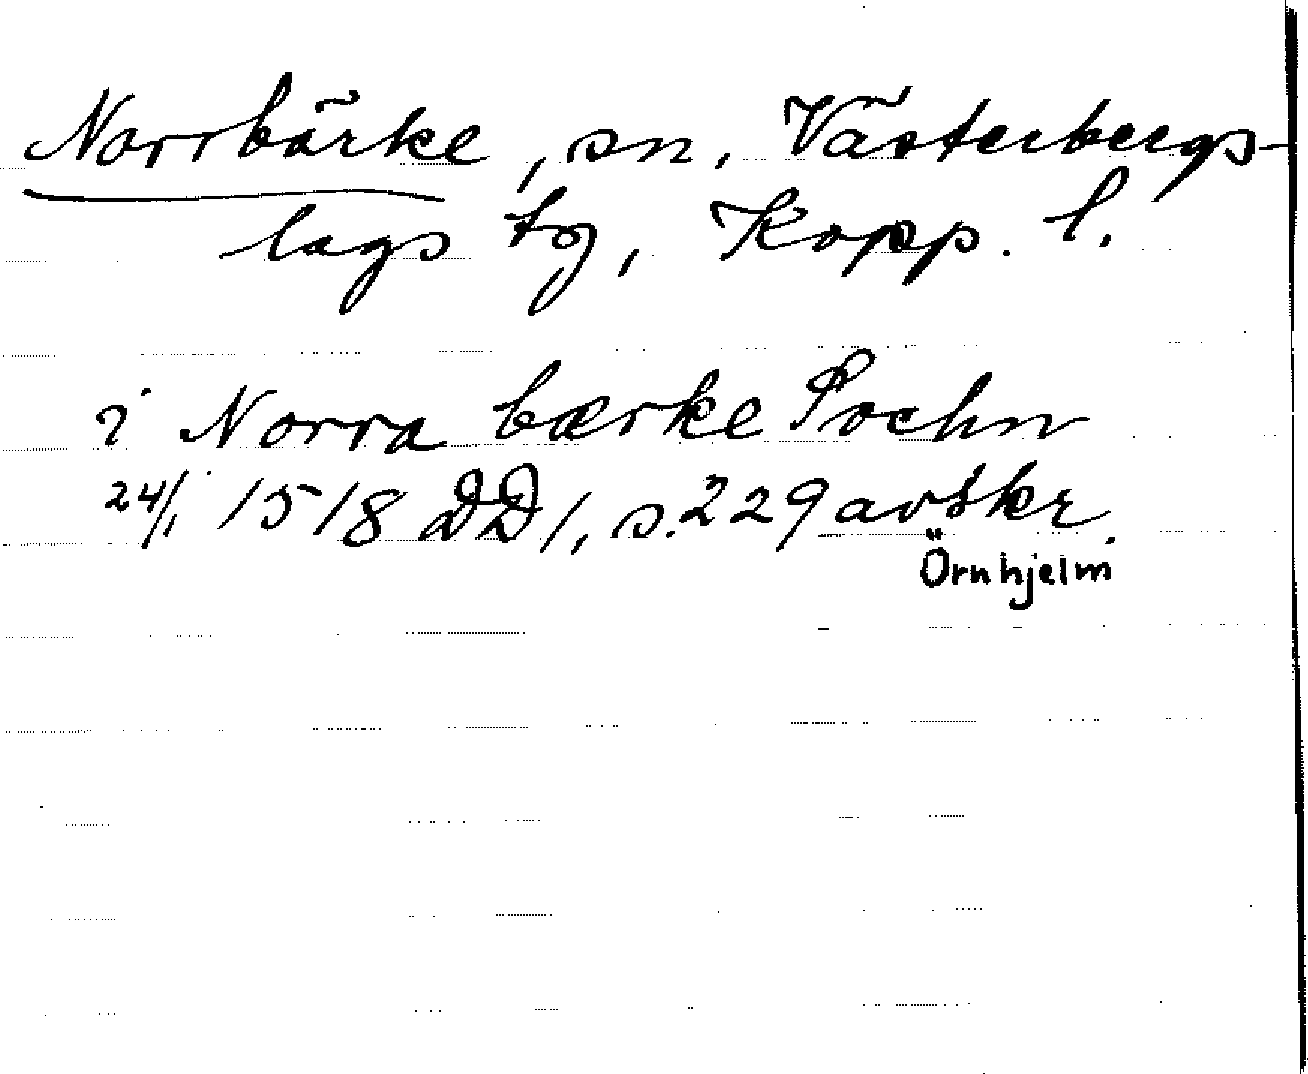 Norrbärke, sn, Västerbergs-
lags tg, Kopp. l.
i Norra bærke Sochn
24/1 1518 DD 1, s. 229 avskr.
Örnhjelm